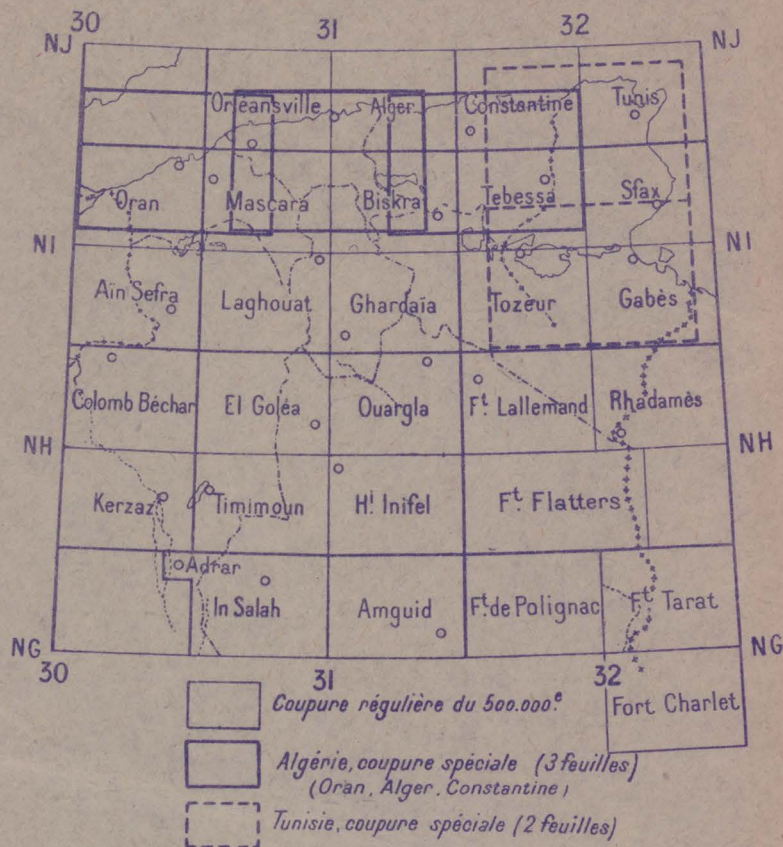 30 31 32
NJ NJ
Orléansville Alger Constantine Tunis
Oran Mascara Biskra Tebessa Sfax
NI NI
Aïn Sefra Laghouat Ghardaïa Tozeur Gabès
Colomb Béchar El Goléa Ouargla Ft. Lallemand Rhadamès
NH NH
Kerzaz Timimoun Hi. Inifel Ft. Flatters
Adrar
In Salah Amguid Ft. de Polignac Ft Tarat
NG NG
30 31 32
Fort Charlet
Coupure régulière du 500.000e.
Algérie, coupure spéciale (3 feuilles)
(Oran, Alger, Constantine)
Tunisie, coupure spéciale (2 feuilles)